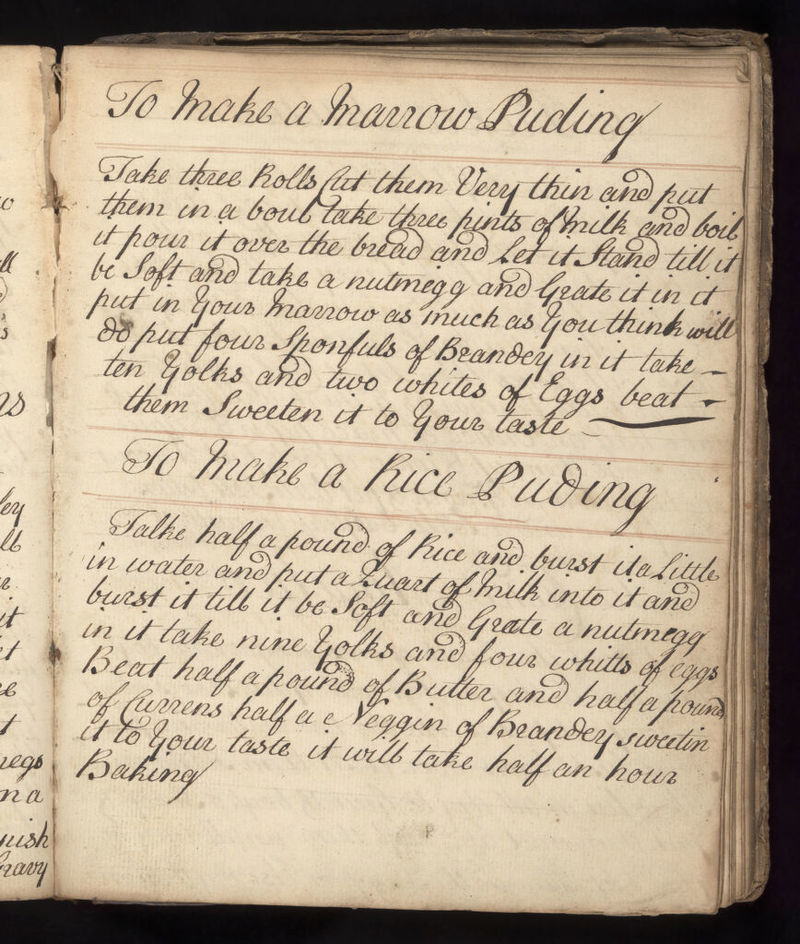 To Make a Marrow Puding
Take three Rolls Cut them Very thin and put
them in a boul take three pints of Milk and boil
it pour it over the bread and Let it Stand till it
be Soft and take a nutmegg and Grate it in it
put in Your Marrow as much as You think will
do put four Sponfuls of Brandey in it take
ten Yolks and two whites of Eggs beat
them Sweeten it to Your taste
To Make a Rice Puding
Talke half a pound of Rice and burst it a Little
in water and put a Quart of Milk into it and
burst it till it be Soft and Grate a nutmegg
in it take nine Yolks and four whitts of eggs
Beat half a pound of Butter and half a pound
of Currens half a Neggin of Brandey sweetin
it to Your taste it will take half an hour
Baking